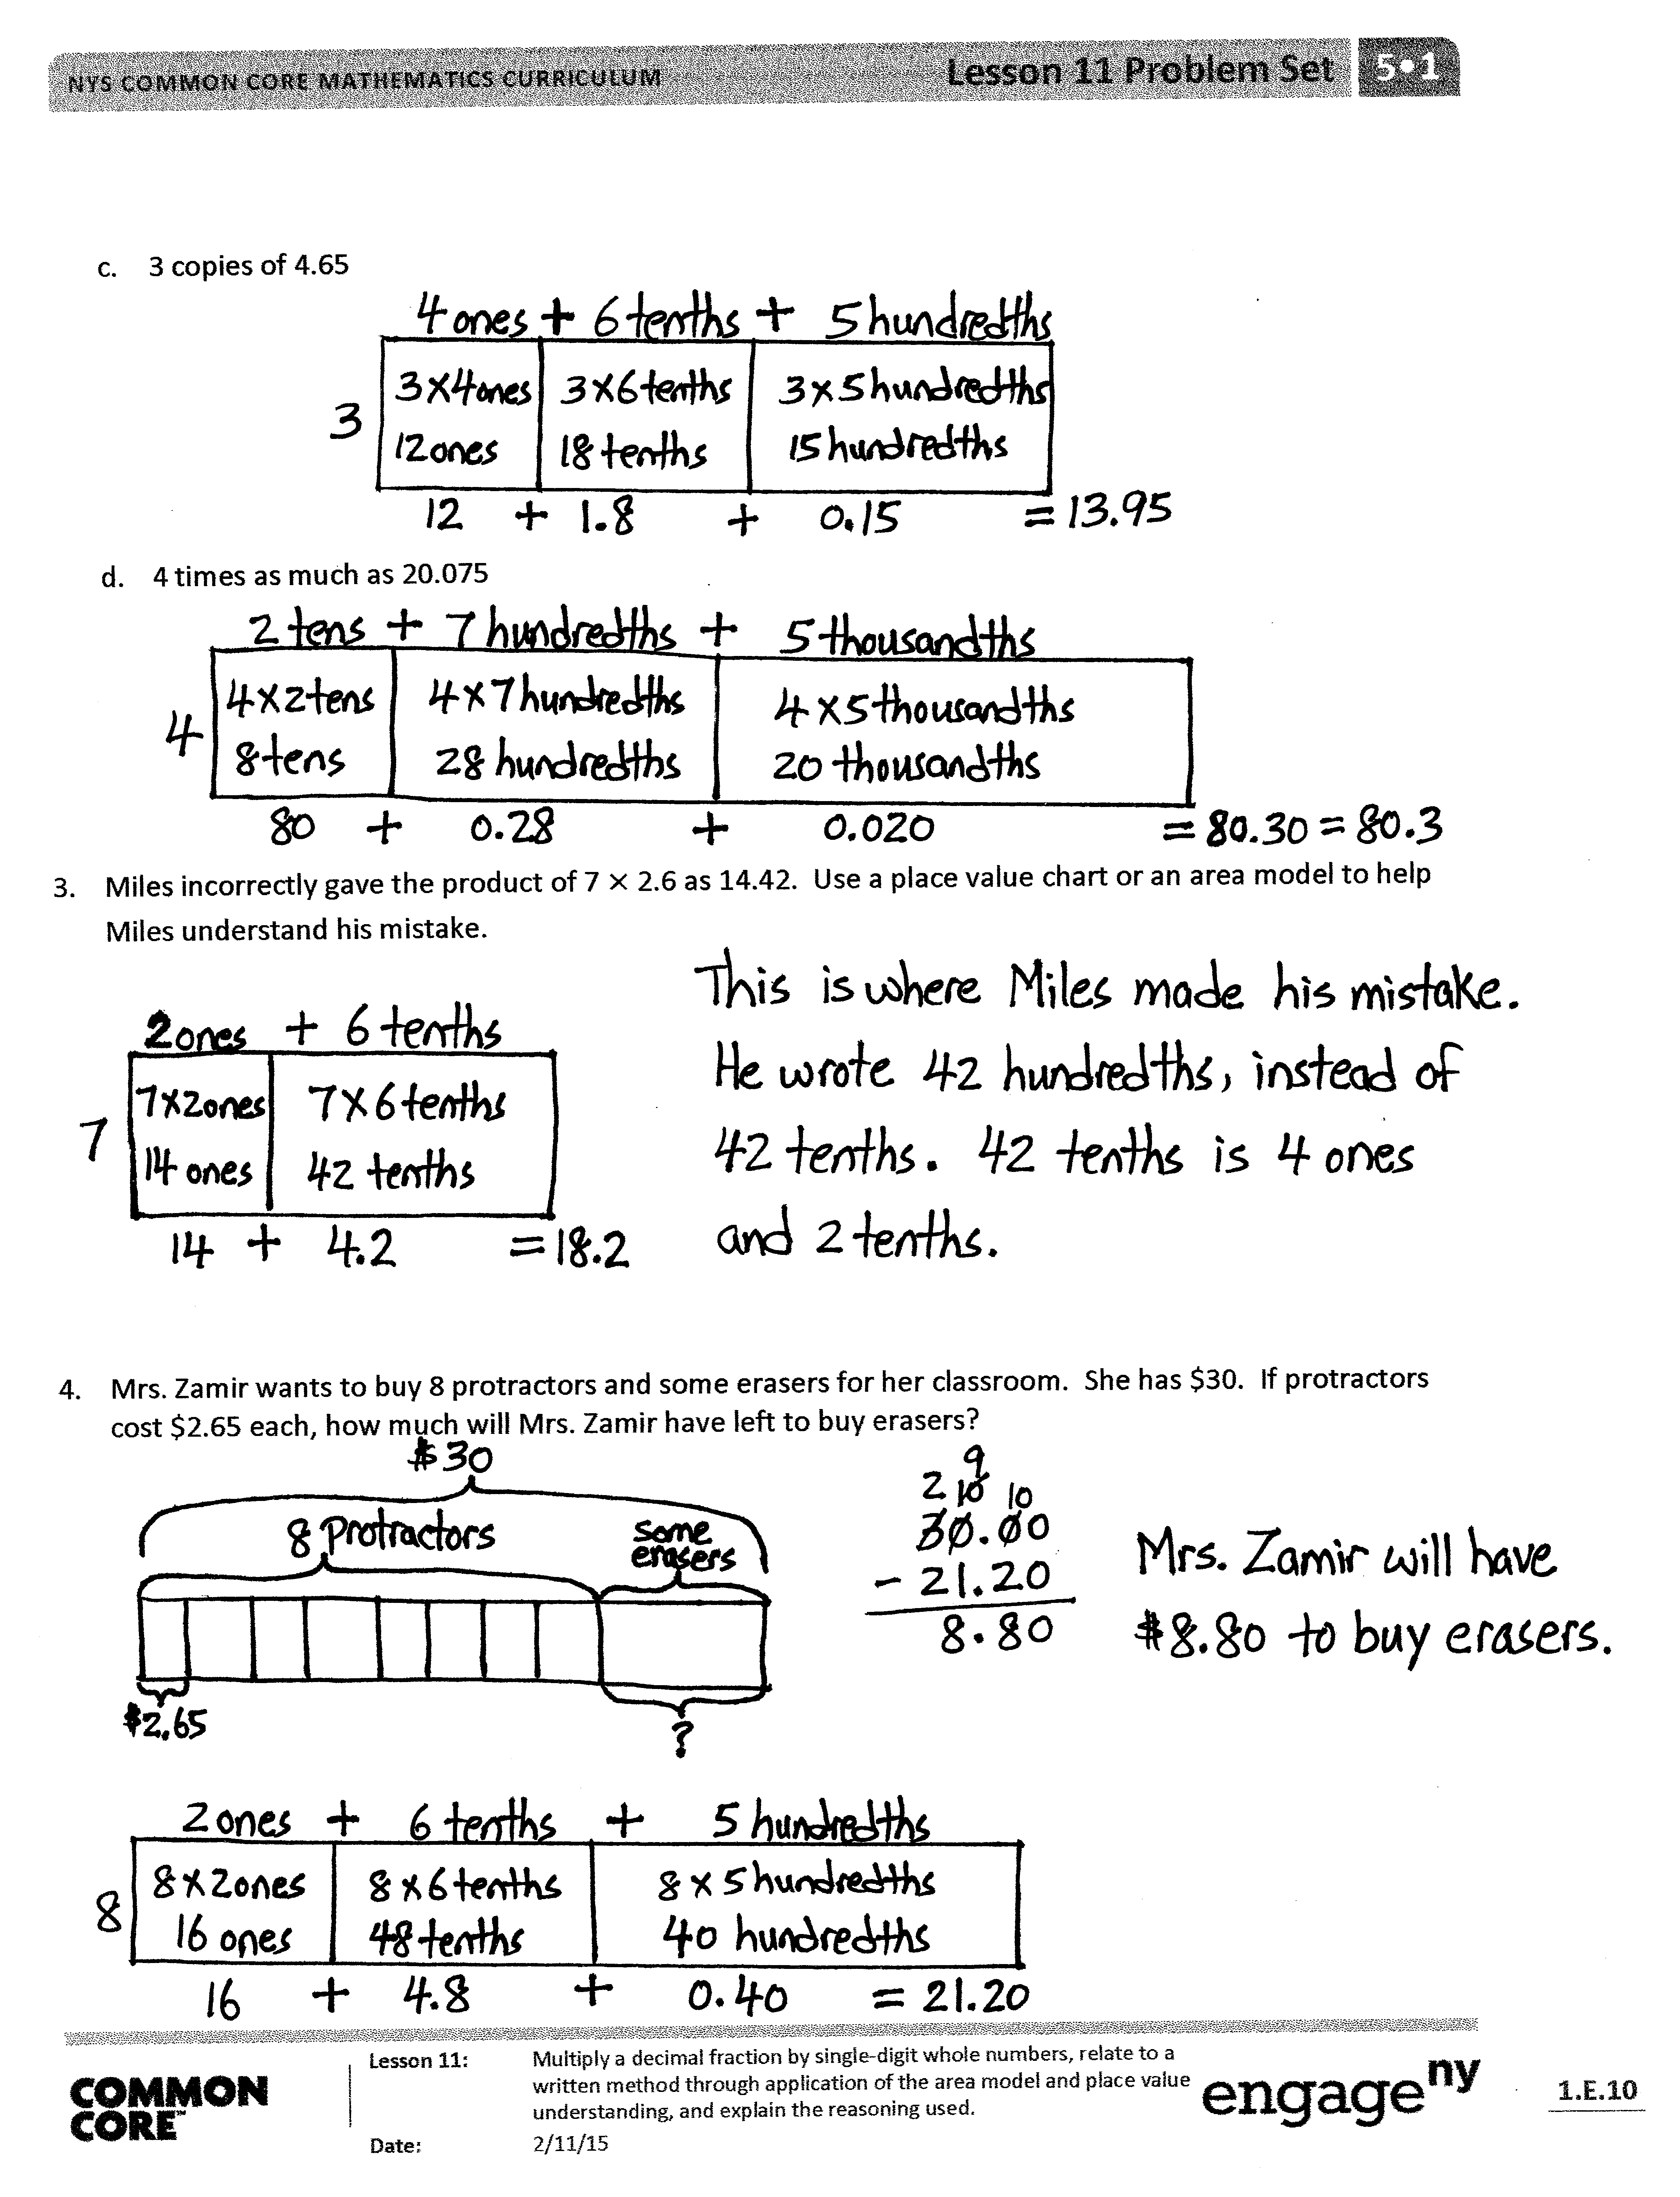 NYS COMMON CORE MATHEMATICS CURRICULUM Lesson 11 Problem Set 5•1
c. 3 copies of 4.65
4 ones + 6 tenths + 5 hundredths
3 3×4 ones 3×6 tenths 3×5 hundredths
12 ones 18 tenths 15 hundredths
12 + 1.8 + 0.15 = 13.95
d. 4 times as much as 20.075
2 tens + 7 hundredths + 5 thousandths
4 4×2 tens 4×7 hundredths 4×5 thousandths
8 tens 28 hundredths 20 thousandths
80 + 0.28 + 0.020 = 80.30 = 80.3
3. Miles incorrectly gave the product of 7 × 2.6 as 14.42. Use a place value chart or an area model to help
Miles understand his mistake.
2 ones + 6 tenths
7 7×2 ones 7×6 tenths
14 ones 42 tenths
14 + 4.2 = 18.2
This is where Miles made his mistake.
He wrote 42 hundredths, instead of
42 tenths. 42 tenths is 4 ones
and 2 tenths.
4. Mrs. Zamir wants to buy 8 protractors and some erasers for her classroom. She has $30. If protractors
cost $2.65 each, how much will Mrs. Zamir have left to buy erasers?
$30
8 Protractors some
erasers
$2.65 ?
9
2 10 10
30.00
- 21.20
8.80
Mrs. Zamir will have
$8.80 to buy erasers.
2 ones + 6 tenths + 5 hundredths
8 8×2 ones 8×6 tenths 8×5 hundredths
16 ones 48 tenths 40 hundredths
16 + 4.8 + 0.40 = 21.20
COMMON
CORE™
Lesson 11: Multiply a decimal fraction by single-digit whole numbers, relate to a
written method through application of the area model and place value
understanding, and explain the reasoning used.
Date: 2/11/15
engageny
1.E.10